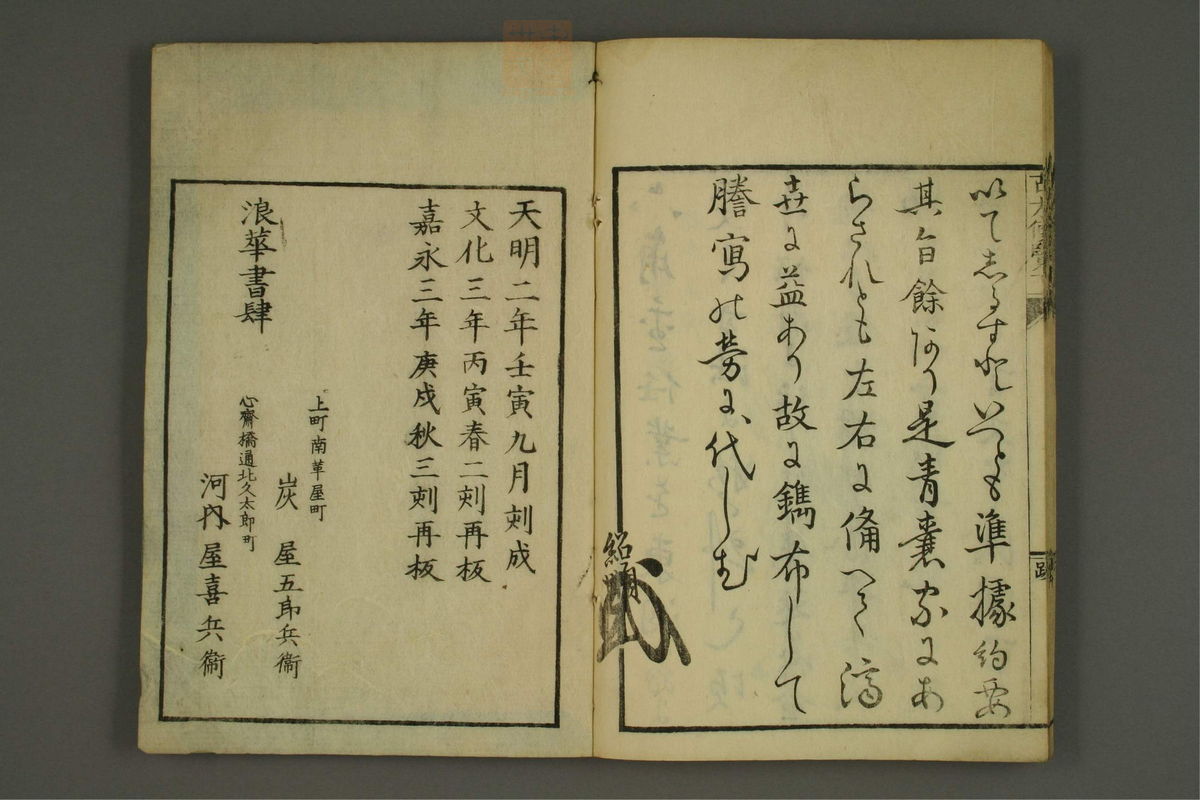 以てしるすといへとも準據約要
其旨餘あり是青嚢家にあ
らされとも左右に備へて濟
世に益あり故に鐫布して
謄寫の勞に代しむ
紹明
跋
天明二年壬寅九月刻成
文化三年丙寅春二刻再板
嘉永三年庚戌秋三刻再板
浪華書肆
上町南革屋町
炭屋五郎兵衞
心齋橋通北久太郎町
河内屋喜兵衞